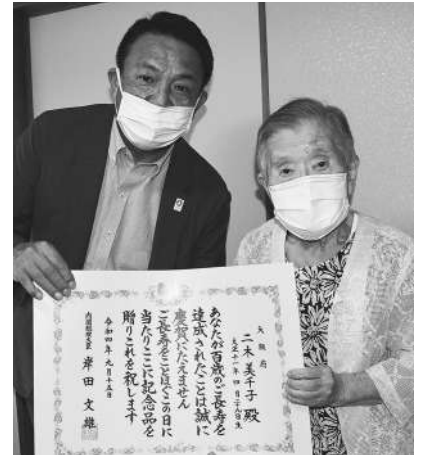 大阪府
二木 美千子 殿
あなたが百歳のご長寿を
達成されたことは誠に
慶賀にたえません
ご長寿をことほぐこの日に
当たりここに記念品を
贈りこれを祝します
令和四年九月十五日
内閣総理大臣 岸田文雄